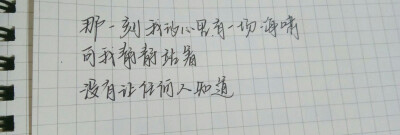 那一刻我的心里有一场海啸
可我静静站着
没有让任何人知道